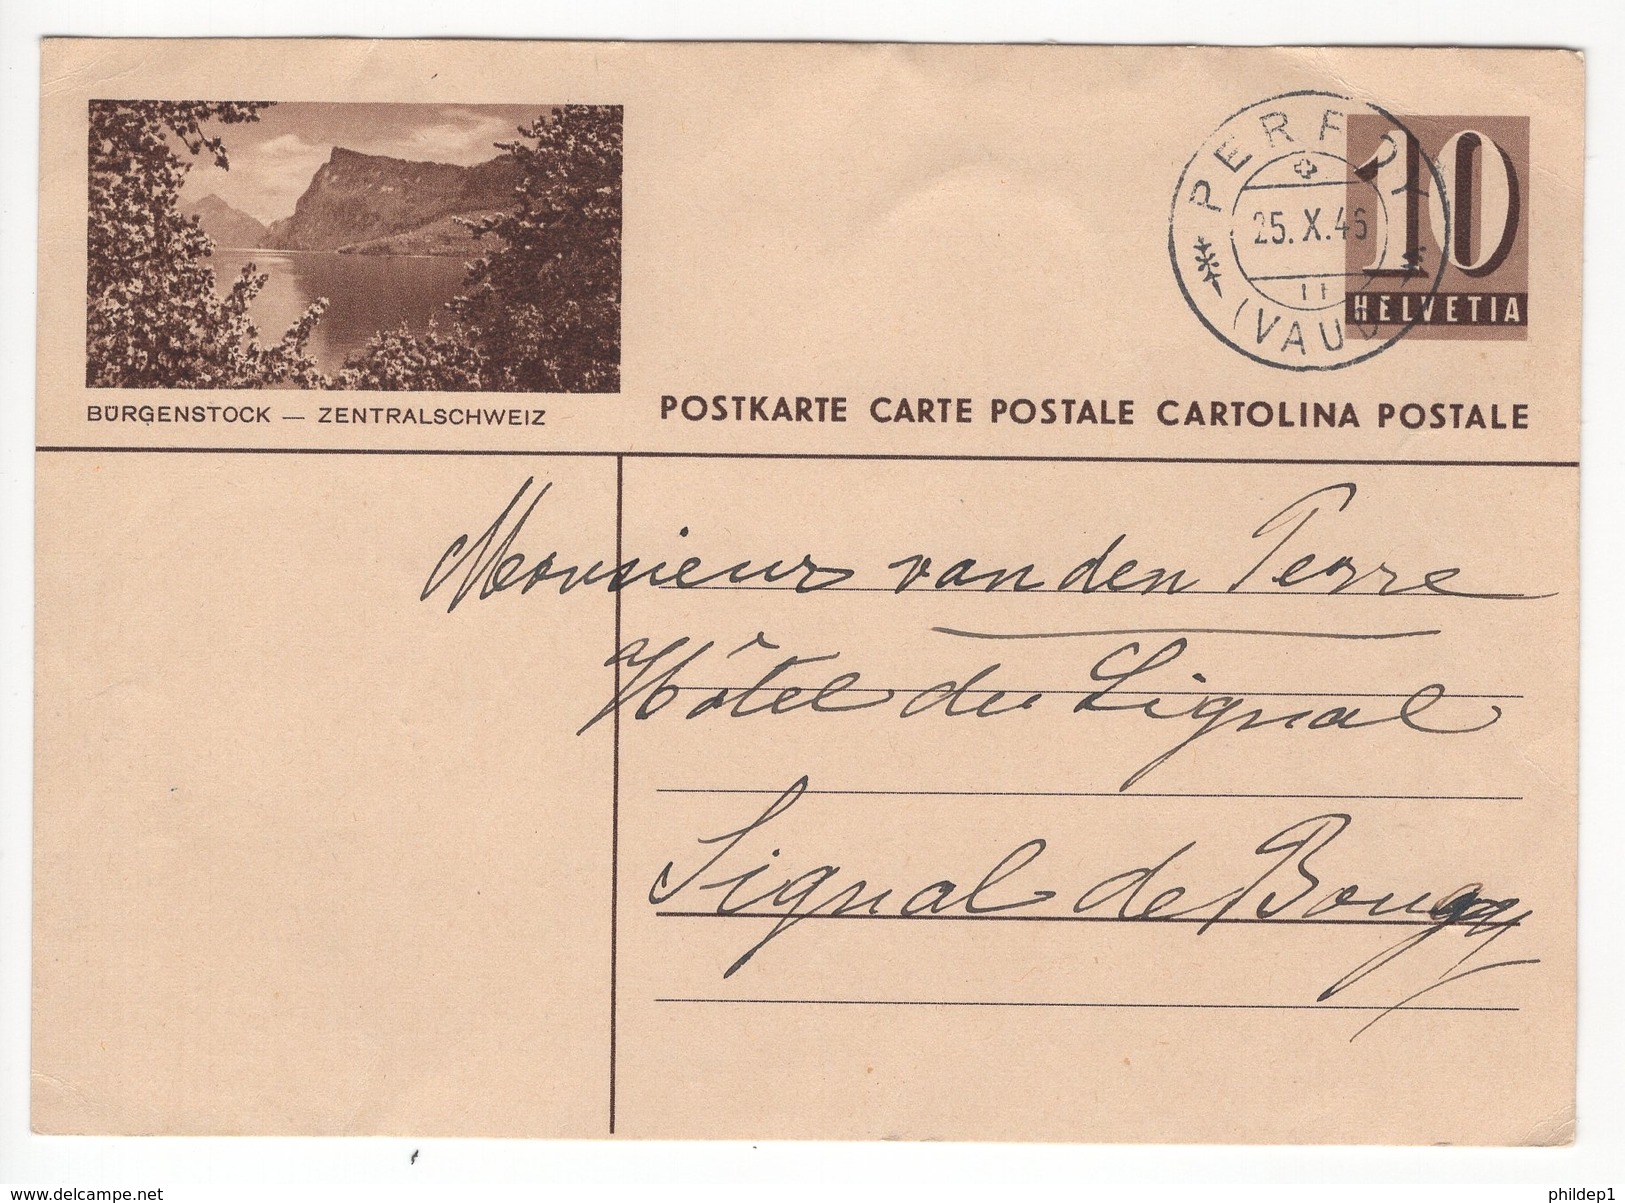 PERROY
25.X.46
(VAUD)
10
HELVETIA
BÜRGENSTOCK — ZENTRALSCHWEIZ
POSTKARTE CARTE POSTALE CARTOLINA POSTALE
Monsieur van den Perre
Hôtel du Signal
Signal de Bougy
www.delcampe.net
phildep1